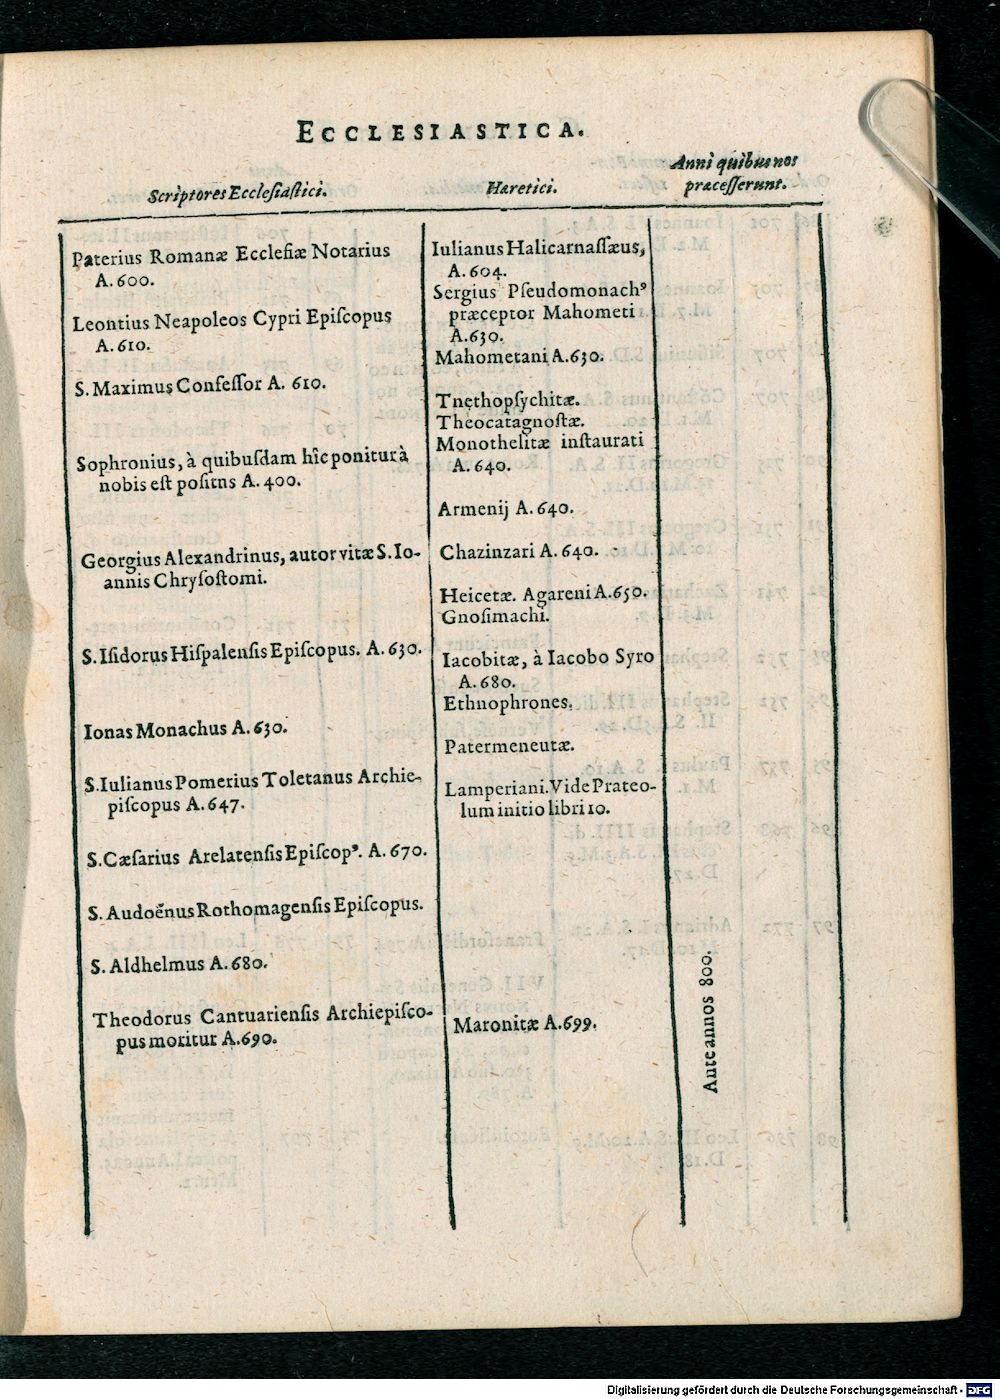 ECCLESIASTICA.
Scriptores Ecclesiaſtici.
Hæretici.
Anni quibus nos
præceſſerunt.
Paterius Romanæ Eccleſiæ Notarius
A. 600.
Leontius Neapoleos Cypri Epiſcopus
A. 610.
S. Maximus Confeſſor A. 610.
Sophronius, à quibuſdam hîc ponitur à
nobis eſt poſitns A. 400.
Georgius Alexandrinus, autor vitæ S. Io-
annis Chryſoſtomi.
S. Iſidorus Hiſpalenſis Epiſcopus. A. 630.
Ionas Monachus A. 630.
S. Iulianus Pomerius Toletanus Archie-
piſcopus A. 647.
S. Cæſarius Arelatenſis Epiſcopꝰ. A. 670.
S. Audoënus Rothomagenſis Epiſcopus.
S. Aldhelmus A. 680.
Theodorus Cantuarienſis Archiepiſco-
pus moritur A. 690.
Iulianus Halicarnaſſæus,
A. 604.
Sergius Pſeudomonachꝰ
præceptor Mahometi
A. 630.
Mahometani A. 630.
Tnethopſychitæ.
Theocatagnoſtæ.
Monothelitæ inſtaurati
A. 640.
Armenij A. 640.
Chazinzari A. 640.
Heicetæ. Agareni A. 650.
Gnoſimachi.
Iacobitæ, à Iacobo Syro
A. 680.
Ethnophrones.
Patermeneutæ.
Lamperiani. Vide Prateo-
lum initio libri 10.
Maronitæ A. 699.
Ante annos 800.
Digitalisierung gefördert durch die Deutsche Forschungsgemeinschaft - DFG